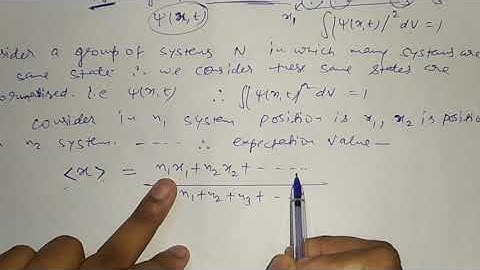 ψ(x,t) x₁ ∫∫|ψ(x,t)|² dV = 1
sider a group of systems N in which many systems are
same state ∴ we consider these same states are
ormalised. i.e ψ(x,t) ∴ ∫∫|ψ(x,t)|² dV = 1
consider in n₁ system position is x₁, x₂ is positio
n n₂ system. - - - - ∴ expectation value —
<x> = n₁x₁ + n₂x₂ + - - - - -
n₁ + n₂ + n₃ + - -